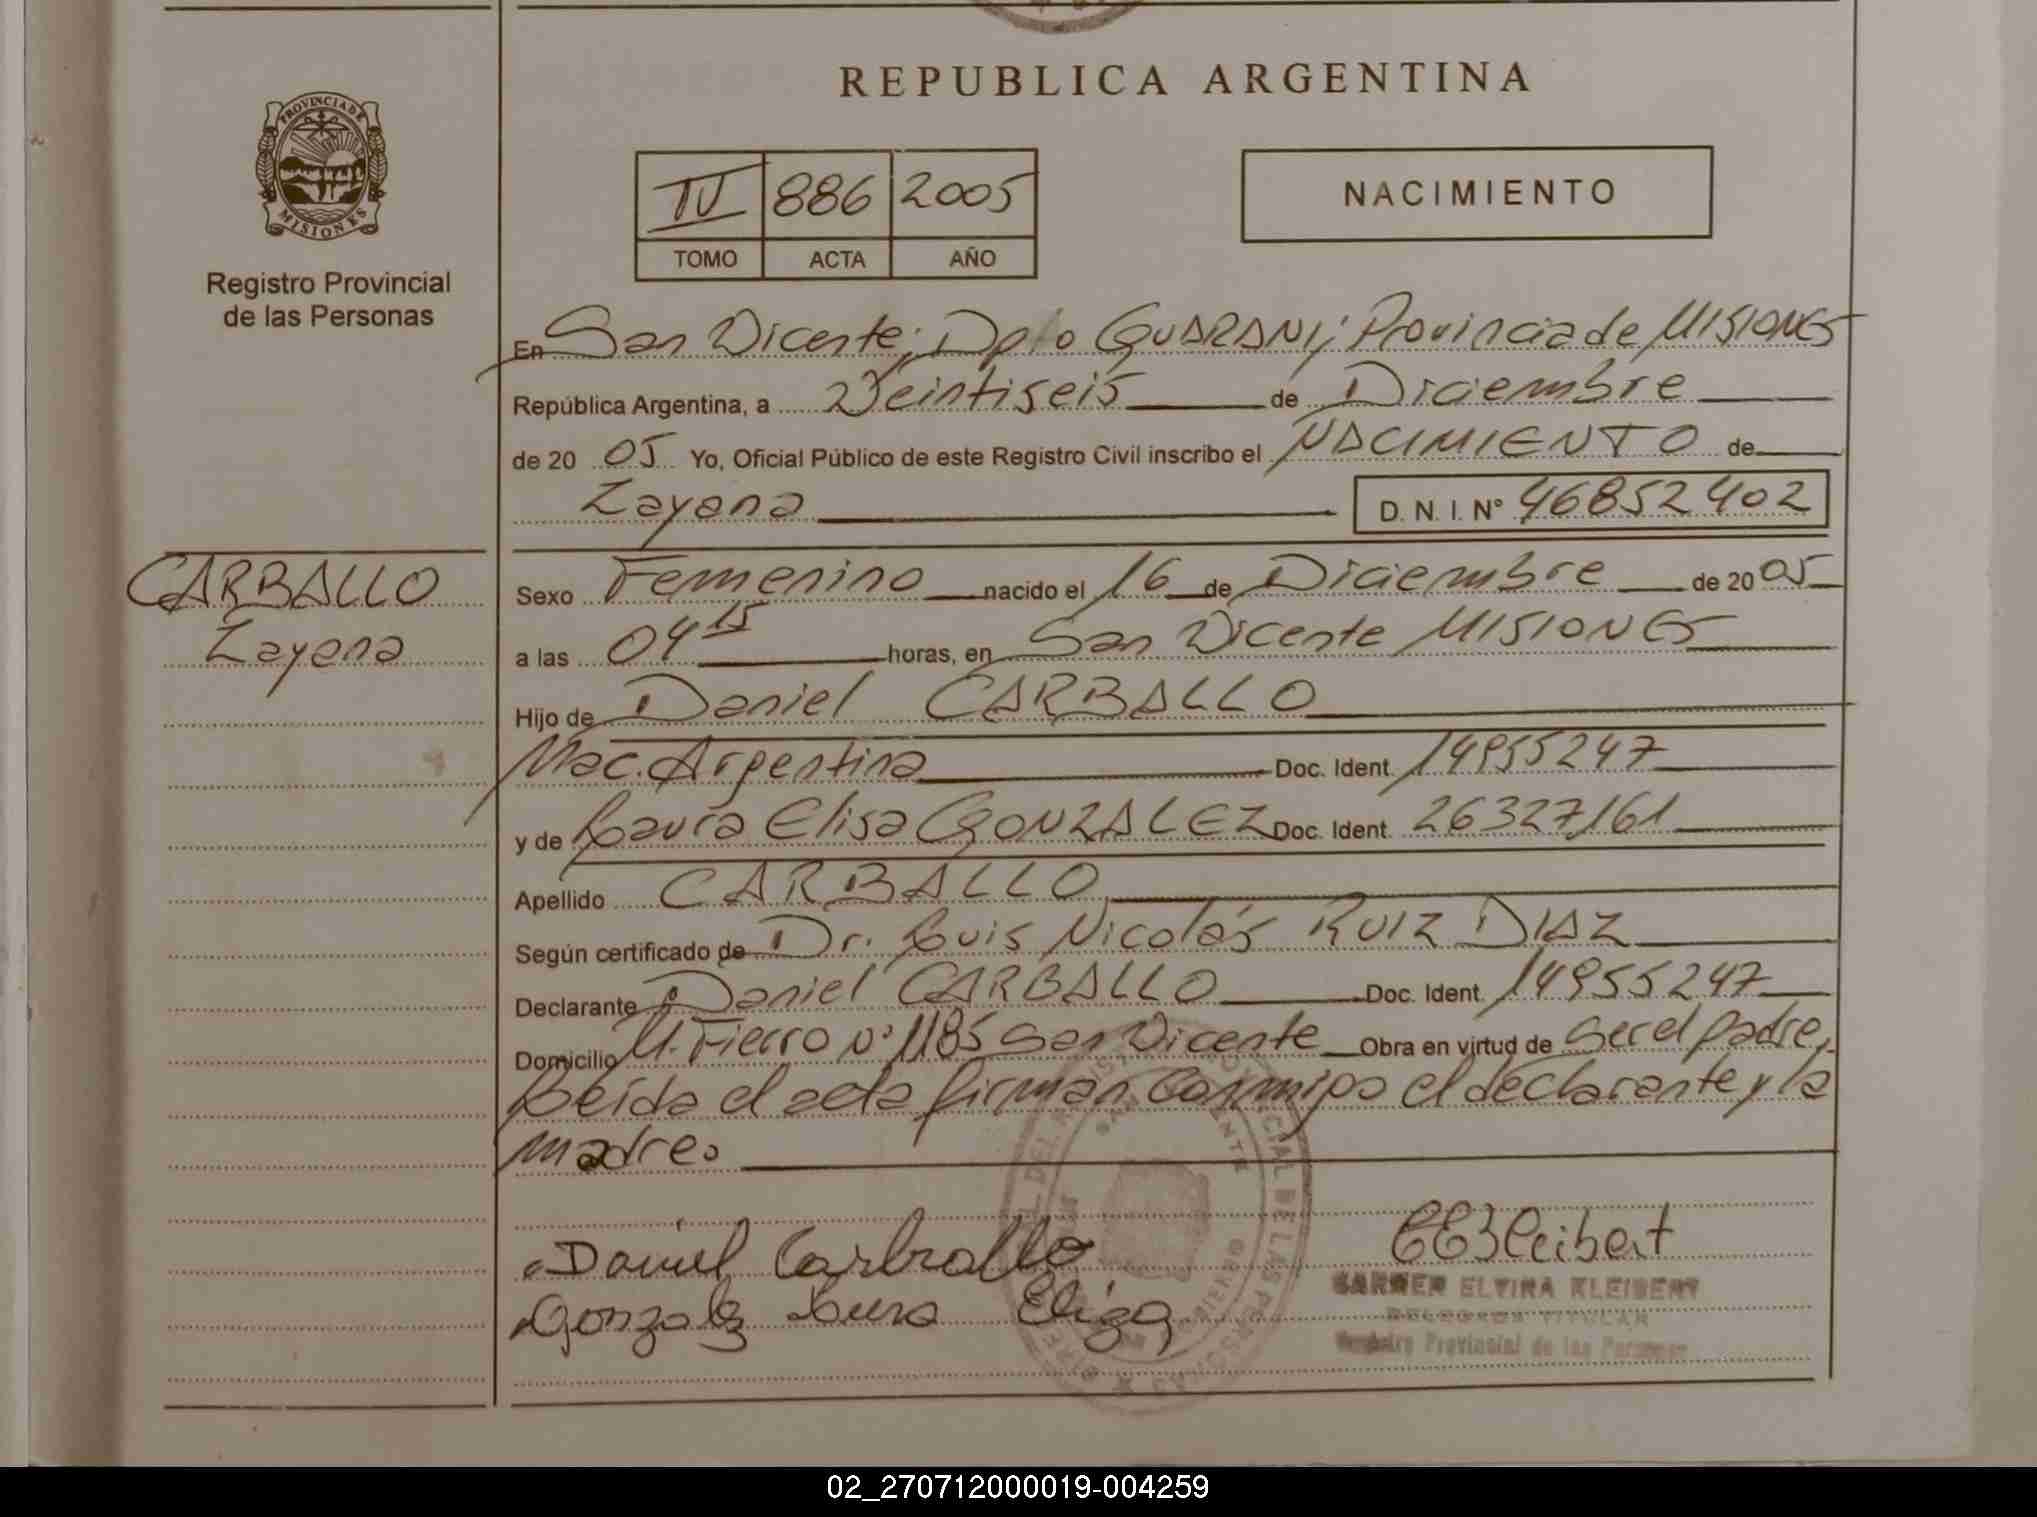 REPUBLICA ARGENTINA
PROVINCIA DE
MISIONES
Registro Provincial
de las Personas
IV 886 2005
TOMO ACTA AÑO
NACIMIENTO
En San Vicente; Dpto GUARANI; Provincia de MISIONES
República Argentina, a Veintiseis de Diciembre
de 20 05 Yo, Oficial Público de este Registro Civil inscribo el NACIMIENTO de
Zayana D. N. I. Nº 46852402
CARBALLO
Zayana
Sexo Femenino nacido el 16 de Diciembre de 20 05
a las 04 15 horas, en San Vicente MISIONES
Hijo de Daniel CARBALLO
Nac. Argentina Doc. Ident. 14955247
y de Laura Elisa GONZALEZ Doc. Ident. 26327161
Apellido CARBALLO
Según certificado de Dr. Luis Nicolás RUIZ DIAZ
Declarante Daniel CARBALLO Doc. Ident. 14955247
Domicilio M. Fierro Nº 1185 San Vicente Obra en virtud de ser el padre,
Leída el acta firman conmigo el declarante y la
madre.
Daniel Carballo
Gonzalez Laura Eliza
CEKleibert
CARMEN ELVIRA KLEIBERT
DELEGADA TITULAR
Registro Provincial de las Personas
02_270712000019-004259